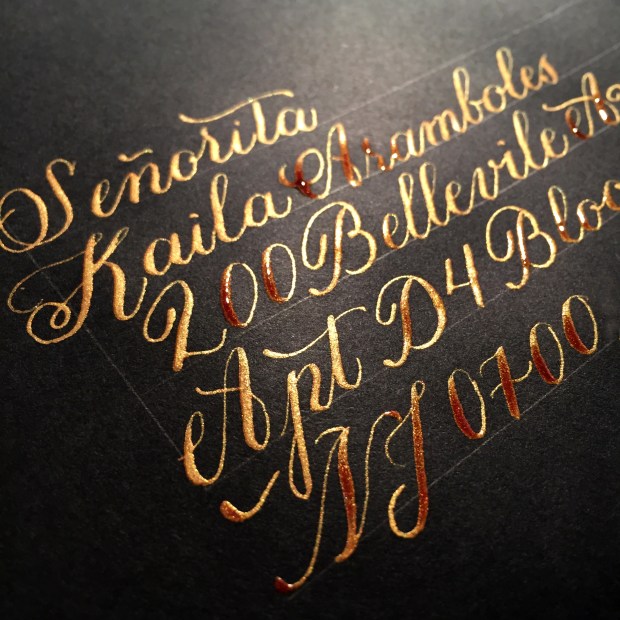 Señorita
Kaila Aramboles
200 Bellevile A
Apt D4 Bloo
NJ 0700